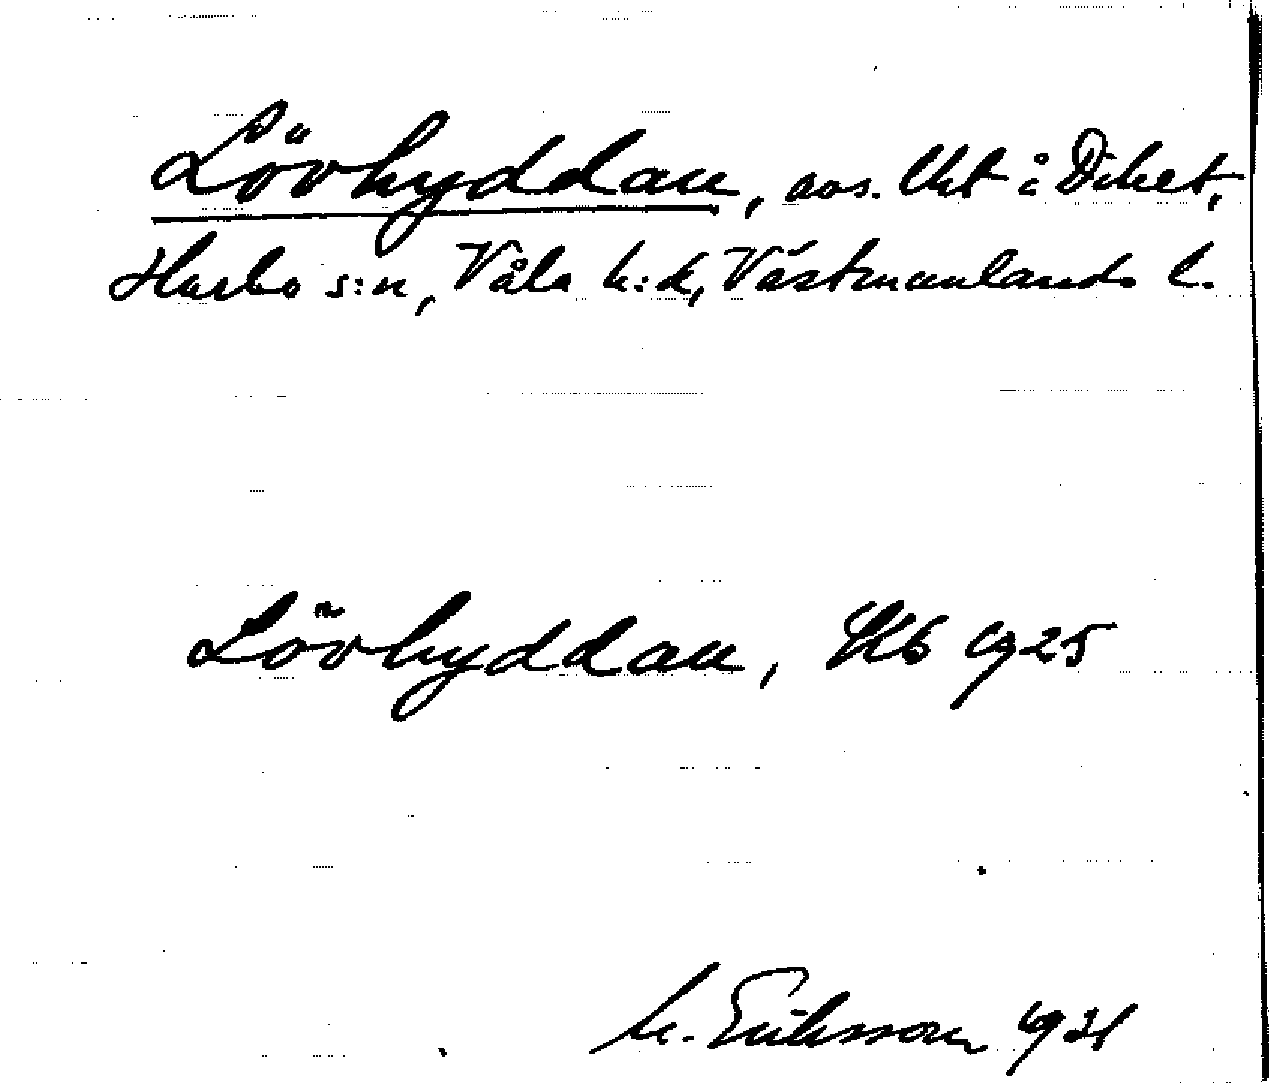 Lövhyddan, avs. Utt i Diket,
Harbo s:n, Våla h:d, Västmanlands l.
Lövhyddan, Skb 1925
M. Eriksson 1931